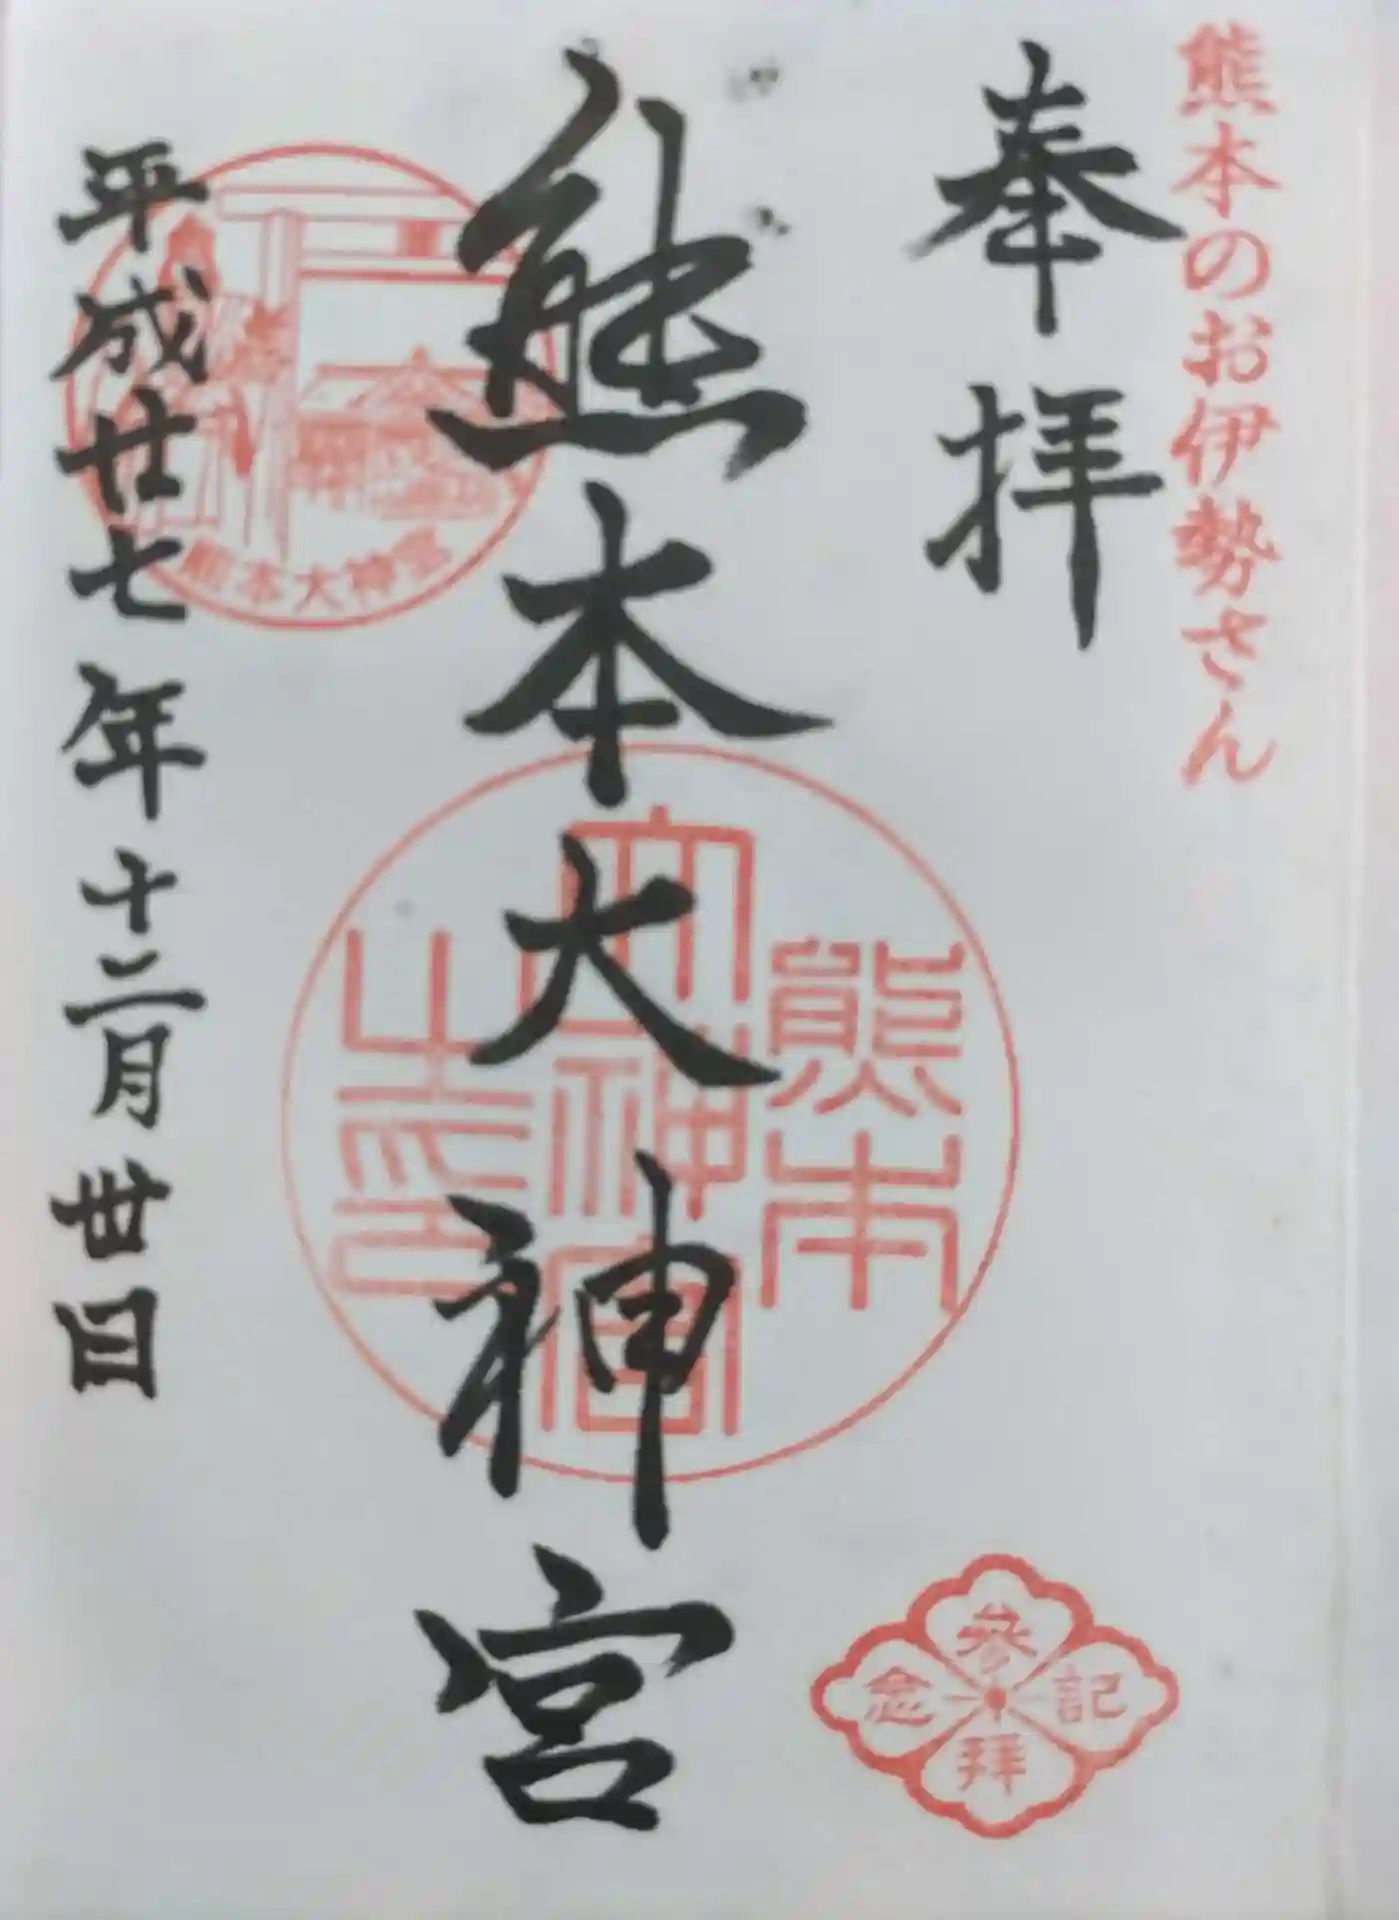 熊本のお伊勢さん
奉拝
熊本大神宮
平成廿七年十二月卅日
熊本大神宮
熊本
大神宮
之印
参拝
記念